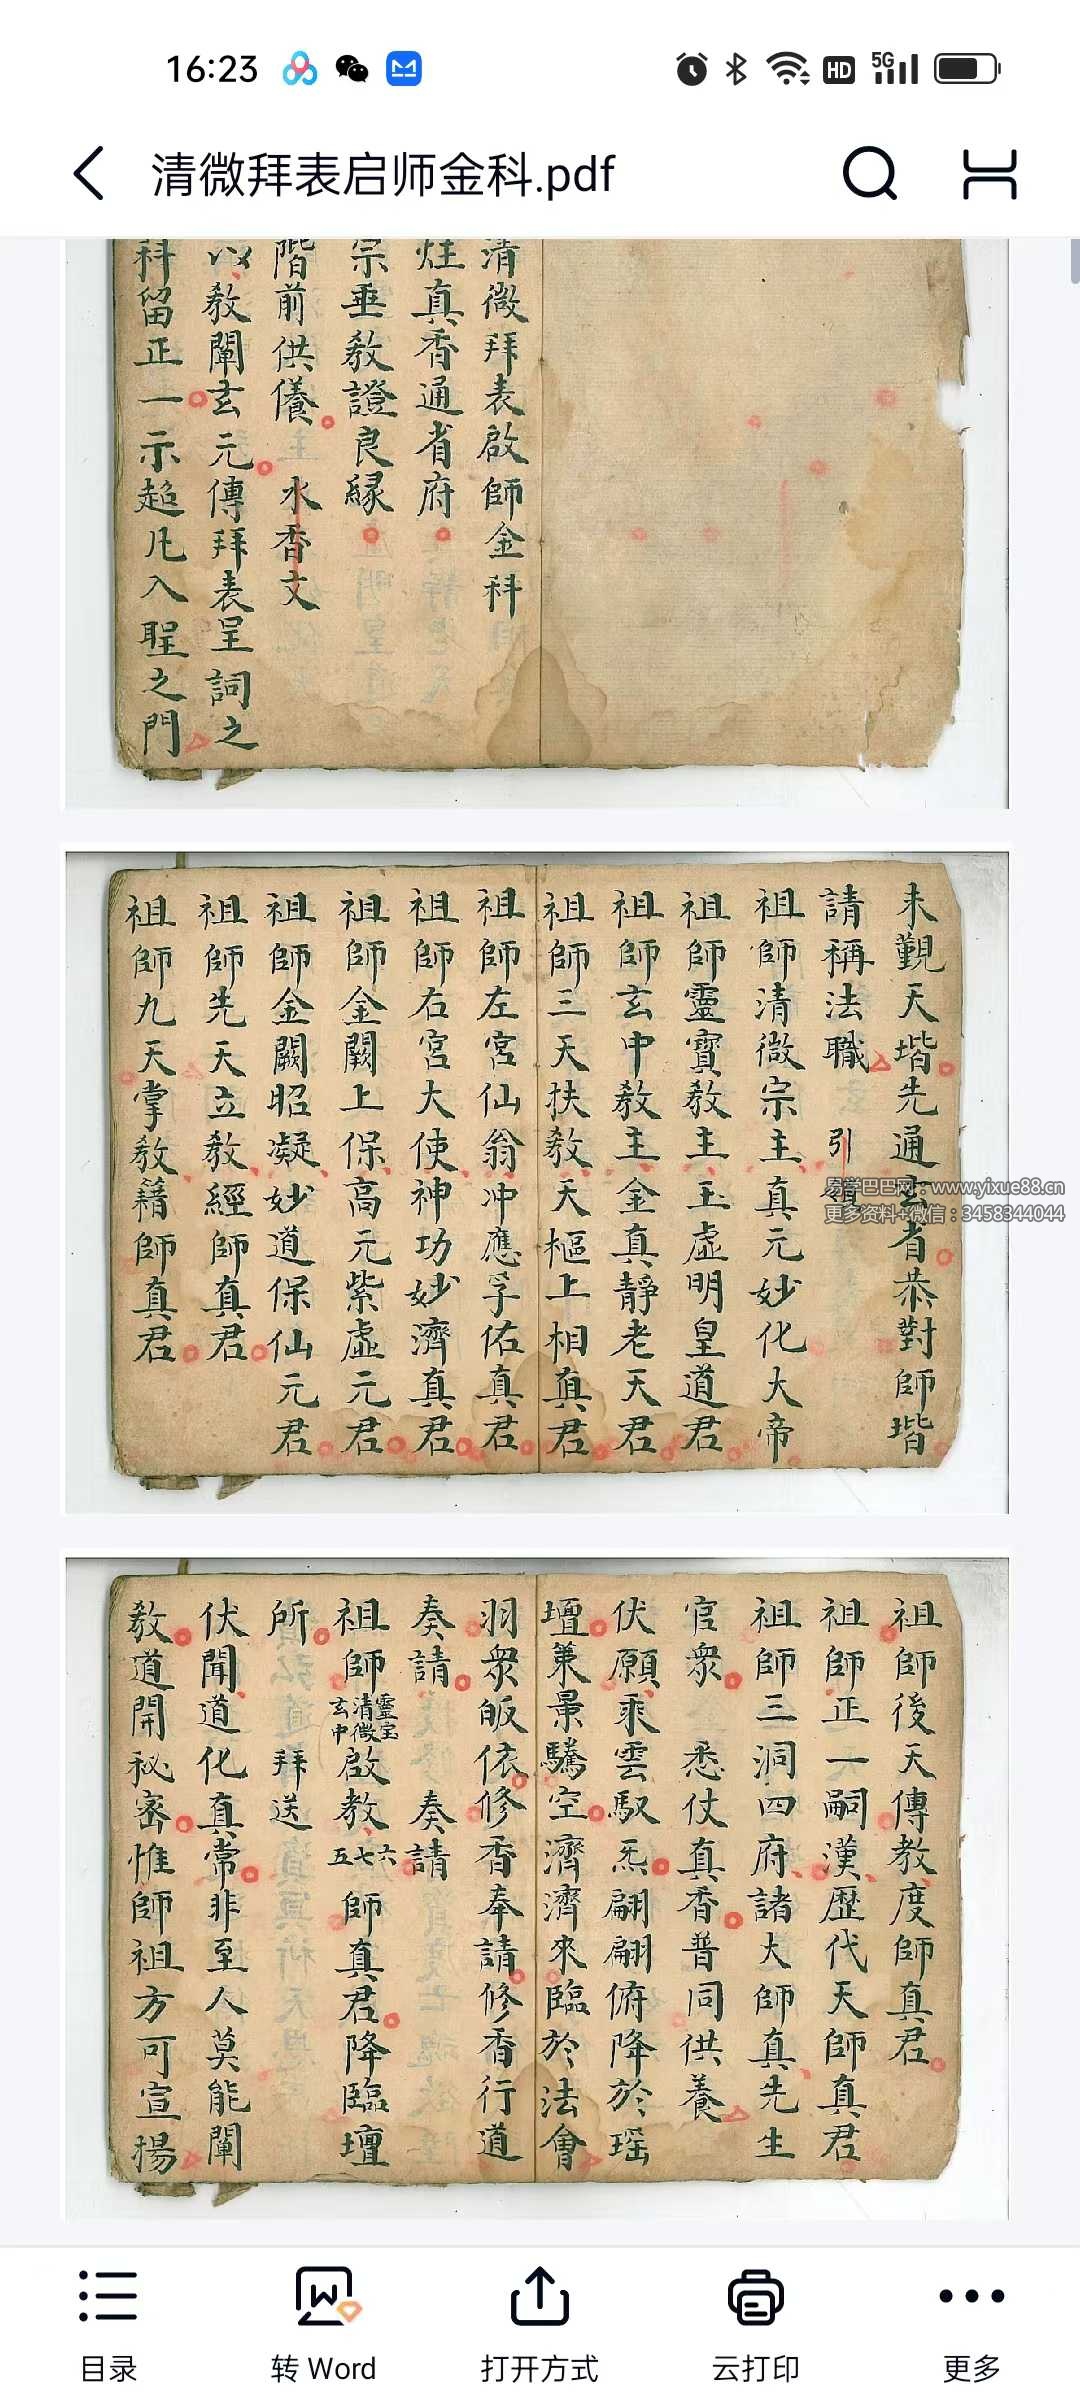 16:23
HD 5G
清微拜表启师金科.pdf
清微拜表啟師金科
炷真香通省府
宗垂教證良緣
階前供養 水香文
以教闡玄元傳拜表呈詞之
科留正一示超凡入聖之門
未覲天堦先通玄省恭對師堦
請稱法職 引
祖師清微宗主真元妙化大帝
祖師靈寶教主玉虛明皇道君
祖師玄中教主金真靜老天君
祖師三天扶教天樞上相真君
祖師左宮仙翁冲應孚佑真君
祖師右宮大使神功妙濟真君
祖師金闕上保高元紫虛元君
祖師金闕昭凝妙道保仙元君
祖師先天立教經師真君
祖師九天掌教籍師真君
易学巴巴网：www.yixue88.cn
更多资料+微信：3458344044
祖師後天傳教度師真君
祖師正一嗣漢歷代天師真君
祖師三洞四府諸大師真先生
官衆 悉仗真香普同供養
伏願乘雲馭炁翩翩俯降於瑶
壇兼景驣空濟濟來臨於法會
羽衆皈依修香奉請修香行道
奏請 奏請
祖師靈宝清微玄中啟教六七五師真君降臨壇
所 拜送
伏聞道化真常非至人莫能闡
教道開秘密惟師祖方可宣揚
目录
转 Word
打开方式
云打印
更多